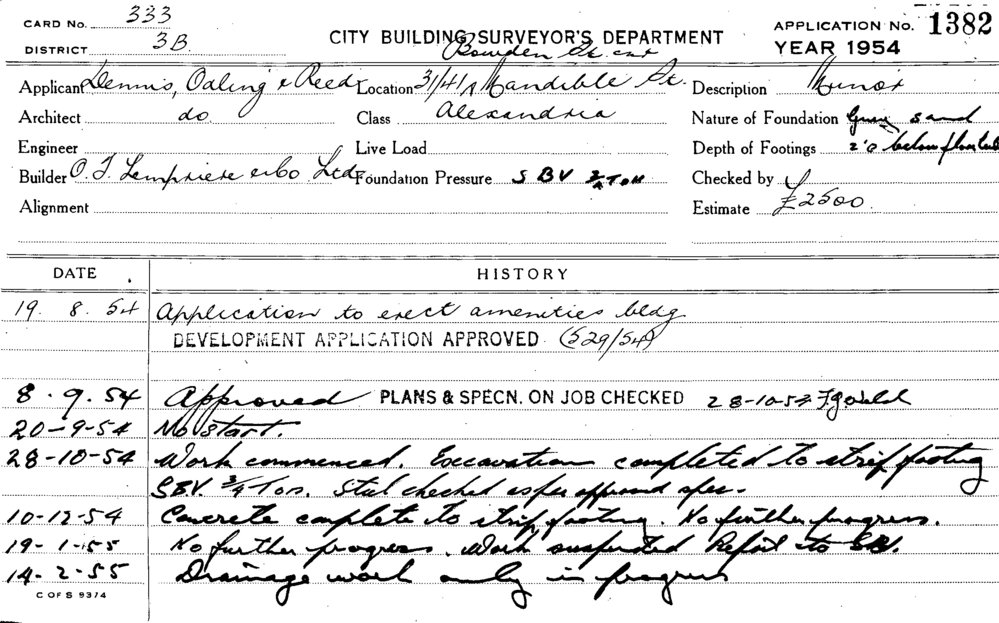 CARD No. 333
DISTRICT 3B
CITY BUILDING SURVEYOR'S DEPARTMENT
APPLICATION No. 1382
YEAR 1954
Bowden St. cnr
Applicant Dennis, Oaling & Reed
Location 31/41A Mandible St.
Description Minor
Architect do.
Class Alexandria
Nature of Foundation Grey sand
Engineer
Live Load
Depth of Footings 2'0 below floor level
Builder O. T. Lempriere & Co Ltd
Foundation Pressure S B V 3/4 Ton
Checked by
Alignment
Estimate £2500.
DATE HISTORY
19. 8. 54 Application to erect amenities bldg
DEVELOPMENT APPLICATION APPROVED (529/54)
8. 9. 54 Approved PLANS & SPECN. ON JOB CHECKED 28-10-54
20-9-54 No start.
28-10-54 Work commenced. Excavation completed to strip footing
SBV. 3/4 Ton. Steel checked as per approved spec.
10-12-54 Concrete complete to strip footing. No further progress.
19-1-55 No further progress. Work suspended Refait to SBV.
14-2-55 Drainage work only in progress
C OF S 9374